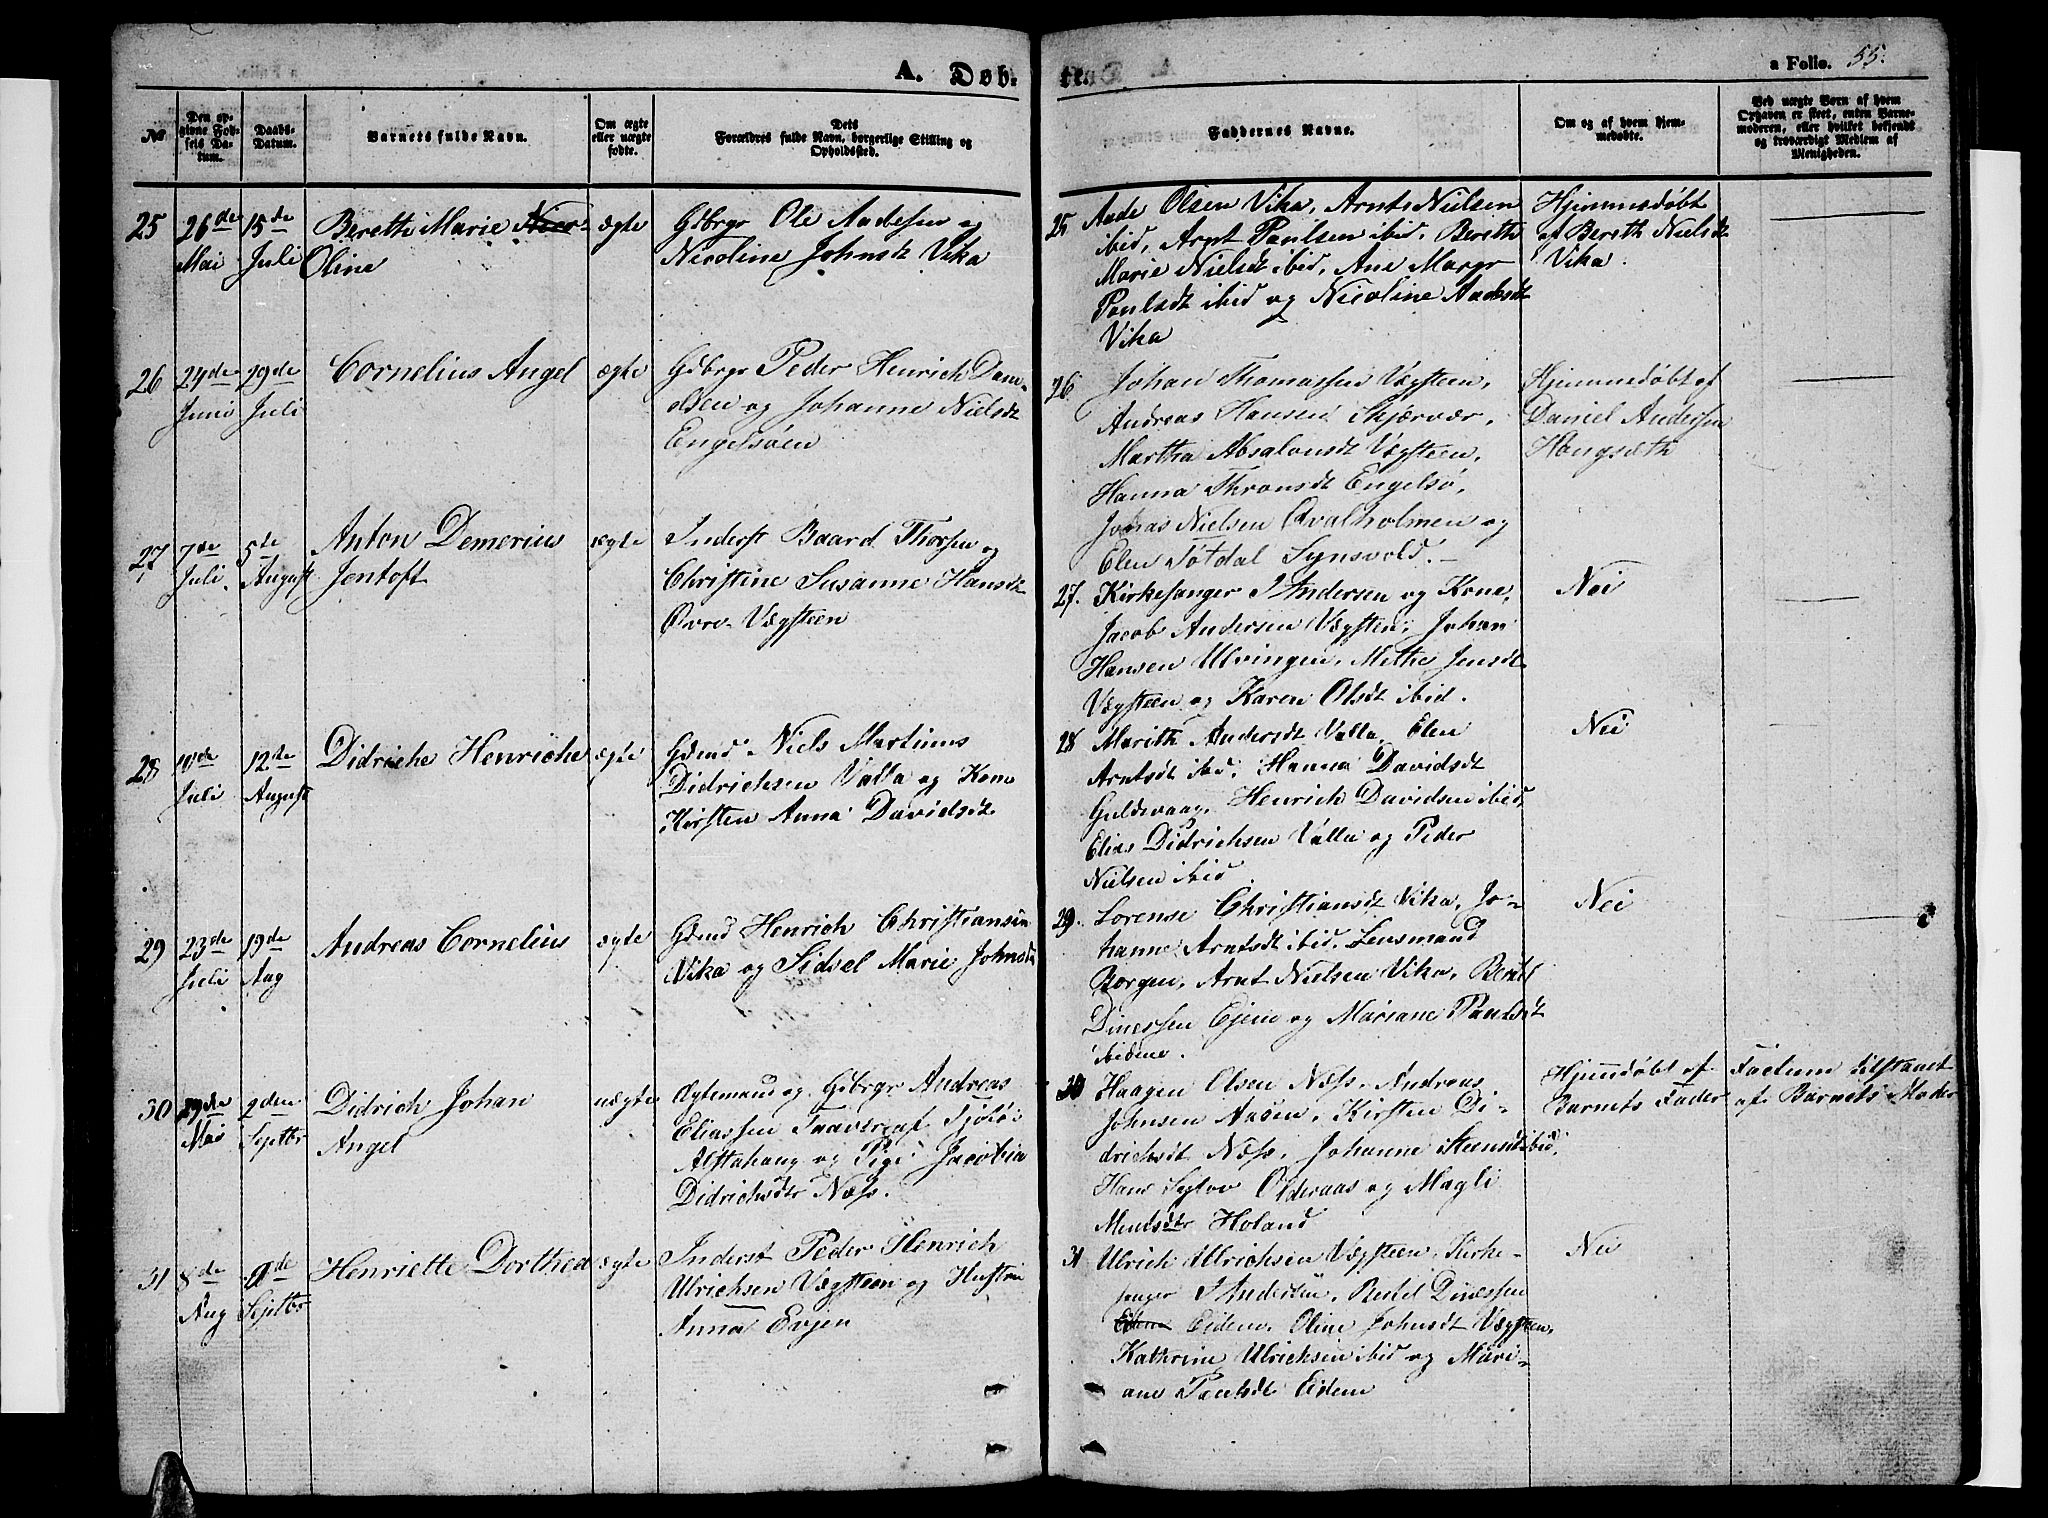 A. Døb-
a Folio. 55.
№
Den opgivne Fødsels Datum.
Daabs-Datum.
Barnets fulde Navn.
Om ægte eller uægte fødte.
Dets Forældres fulde Navn, borgerlige Stilling og Opholdssted.
Faddernes Navne.
Om og af hvem hjemmedøbte.
Ved uægte Børn af hvem Opgaven er skeet, enten Barnemoderen, eller hvilket bekjendt og troværdigt Medlem af Menigheden.
25 26de Mai 15de Juli
Bereth Marie
Oline
ægte
Gbrgr Ole Andersen og
Nicoline Johnsdt Vika
25 Ande Olsen Vika, Arnt Nielsen
ibid, Arnt Paulsen ibid, Bereth
Marie Nielsdt ibid, Ane Margr
Paulsdt ibid og Nicoline Andersdt
Vika
Hjemmedøbt
af Bereth Nielsdt
Vika.
26 24de Juni 29de Juli
Cornelius Angel
ægte
Gbrgr Peder Henrich Dani-
elsen og Johanne Nielsdt
Engelsøen
26 Johan Thomassen Vægsteen,
Andreas Hansen Skjærvær,
Martha Absalonsdt Vægsteen,
Hanna Thronsdt Engelsø,
Johas Nielsen Qvalholmen og
Elen Søtdal Synsvold.
Hjemmedøbt af
Daniel Andersen
Hongsæth
27 7de Juli 5te August
Anton Demerius
Jentoft
ægte
Inderst Baard Thorsen og
Christine Susanne Hansdt
Øvre-Vægsteen
27. Kirkesanger J Andersen og Kone,
Jacob Andersen Vægsten, Johan
Hansen Ulvingen, Methe Jensdt
Vægsteen og Karen Olsdt ibid.
Nei
28 10de Juli 12de August
Didriche Henriche
ægte
Gdmd Niels Martinus
Didrichsen Valla og Kone
Kirsten Anna Davidsdt
28 Marith Andersdt Valla, Elen
Arntsdt ibid, Hanna Davidsdt
Guldvaag, Henrich Davidsen ibid,
Elias Didrichsen Valla og Peder
Nielsen ibid
Nei
29 23de Juli 19de Aug
Andreas Cornelius
ægte
Gdmd Henrich Christiansen
Vika og Sidsel Marie Johnsdt
29. Lorense Christiansdt Vika, Jo-
hanne Arntsdt ibid, Lensmand
Borgen, Arnt Nielsen Vika, Bertel
Dinessen Ejem og Mariane Paulsdt
ibidem.
Nei
30 29de Mai 2den Septbr
Didrich Johan
Angel
uægte
Ægtemand og Gbrgr Andreas
Eliassen Tnavær af Tjøtø:
Alstahaug og Pige Jacobia
Didrichsdtr Næss.
30 Haagen Olsen Næss, Andreas
Johnsen Aasen, Kirsten Di-
drichsdt Næss, Johanne Steensdt ibid,
Hans Olderaas og Magli
Mentsdtr Holand
Hjemdøbt af
Barnets Fader
Factum tilstaaet
af Barnets Moder
31 8de Aug 9de Septbr
Henriette Dorthea
ægte
Inderst Peder Henrich
Ulrichsen Vægsteen og Hustru
Anna Evjen
31 Ulrich Ulrichsen Vægsteen, Kirke-
sanger J Andersen, Bertel Dinessen
Eidem, Oline Johnsdt Vægsteen,
Kathrine Ulrichsen ibid og Mari-
ane Paulsdt Eidem
Nei